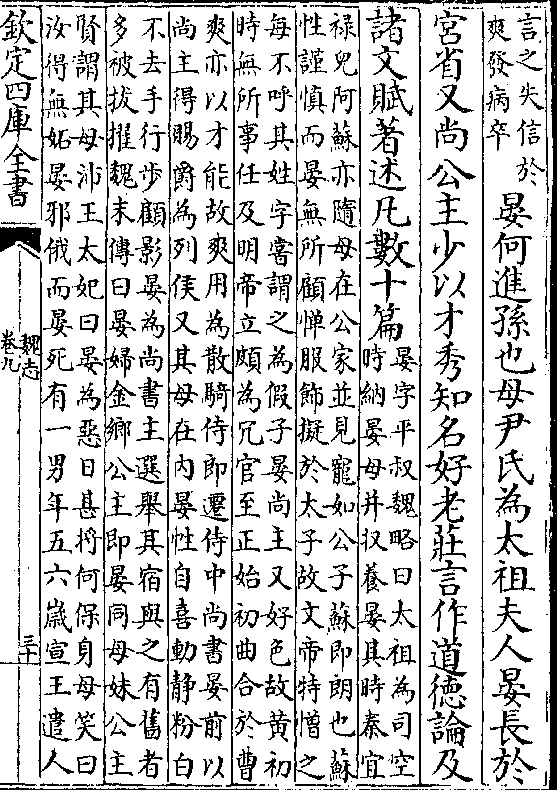 言之失信於
爽發病卒
晏何進孫也母尹氏為太祖夫人晏長於
宮省又尚公主少以才秀知名好老莊言作道德論及
諸文賦著述凡數十篇
晏字平叔魏略曰太祖為司空
時納晏母并收養晏其時秦宜
祿兒阿蘇亦隨母在公家並見寵如公子蘇即朗也蘇
性謹慎而晏無所顧憚服飾擬於太子故文帝特憎之
每不呼其姓字嘗謂之為假子晏尚主又好色故黄初
時無所事任及明帝立頗為冗官至正始初曲合於曹
爽亦以才能故爽用為散騎侍郎遷侍中尚書晏前以
尚主得賜爵為列侯又其母在内晏性自喜動静粉白
不去手行步顧影晏為尚書主選舉其宿與之有舊者
多被拔擢魏末傳曰晏婦金鄉公主即晏同母妹公主
賢謂其母沛王太妃曰晏為惡日甚將何保身母笑曰
汝得無妬晏邪俄而晏死有一男年五六歲宣王遣人
欽定四庫全書
魏志
卷九
三十